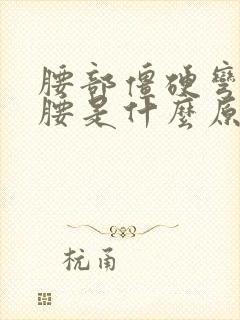 腰部僵硬彎
腰是什麼原
杭甬